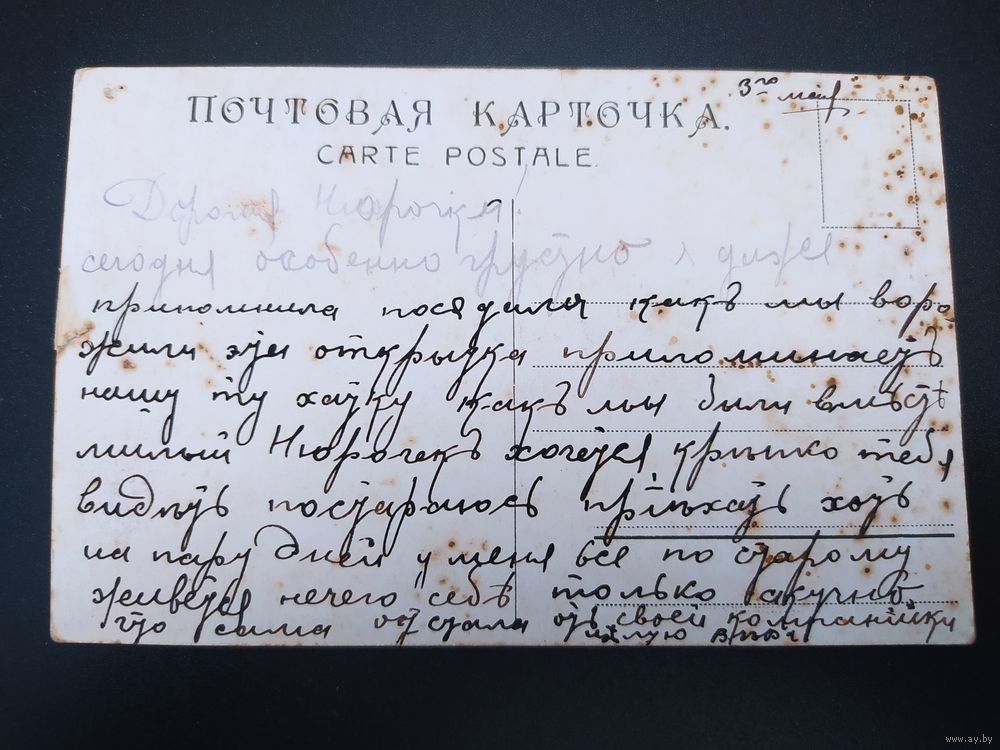 ПОЧТОВАЯ КАРТОЧКА.
CARTE POSTALE.
3го мая
Дорогая Нюрочка!
сегодня особенно грустно я даже
припомнила посядали какъ мы воро
жили эта открытка припоминаетъ
нашу ту хатку какъ мы были вмѣстѣ
милый Нюрочекъ хочется крѣпко тебя
видѣть постараюсь пріѣхать хоть
на пару дней у меня все по старому
живется нечего себѣ только скучно
что сама отстала отъ своей компанійки
цѣлую
www.ay.by